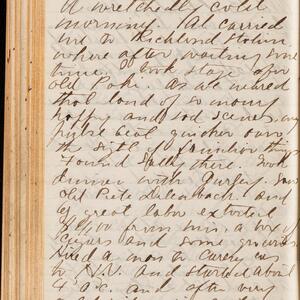 A wretchedly cold
morning. Pat carried
me to Richland Station
where after waiting some
time I took stage for
old Poke. As we neared
that land of so many
happy and sad scenes, my
pulse beat quicker over
the sight of familiar things
Found Sally there. Took
dinner with Gurley. Saw
old Pete and
by great labor extorted
$ from him, a box of
cigars and some groceries
Hired a man to carry us
to N.V. and started about
4 o.c. and after very